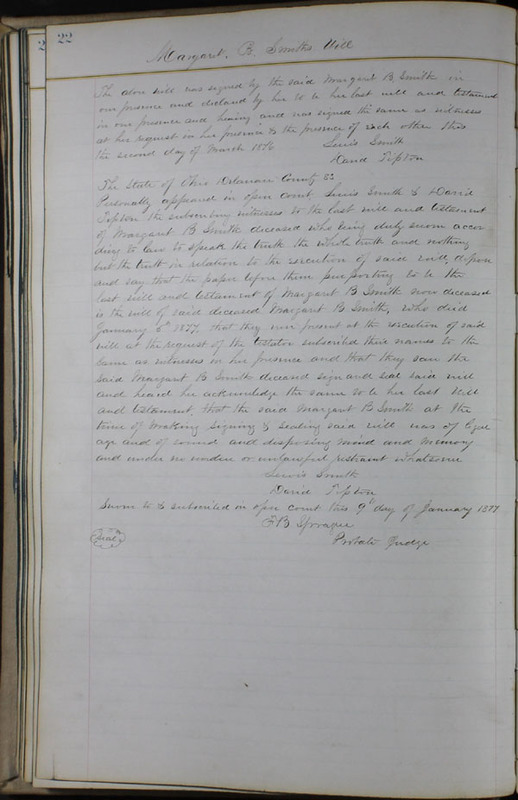 22
Margaret. B. Smiths Will
The above will was signed by the said Margaret B. Smith in
our presence and declared by her to be her last will and testament
in our presence and hearing and was signed the same as witnesses
at her request in her presence & the presence of each other this
the second day of March 1876
Lewis Smith
David Tipton
The State of Ohio Delaware County SS
Personally appeared in open court, Lewis Smith & David
Tipton the subscribing witnesses to the last will and testament
of Margaret B Smith deceased who being duly sworn accor
ding to law to speak the truth the whole truth and nothing
but the truth in relation to the execution of said will, depose
and say that the paper before them purporting to be the
last will and testament of Margaret B Smith now deceased
is the will of said deceased Margaret B Smith, who died
January 1877, that they were present at the execution of said
will at the request of the testator subscribed their names to the
same as witnesses in her presence and that they saw the
said Margaret B Smith deceased sign and seal said will
and heard her acknowledge the same to be her last will
and testament, that the said Margaret B Smith at the
time of making signing & sealing said will was of legal
age and of sound and disposing mind and memory
and under no undue or unlawful restraint whatsoever
Lewis Smith
David Tipton
Sworn to & subscribed in open court this 9th day of January 1877
F B Sprague
Seal
Probate Judge